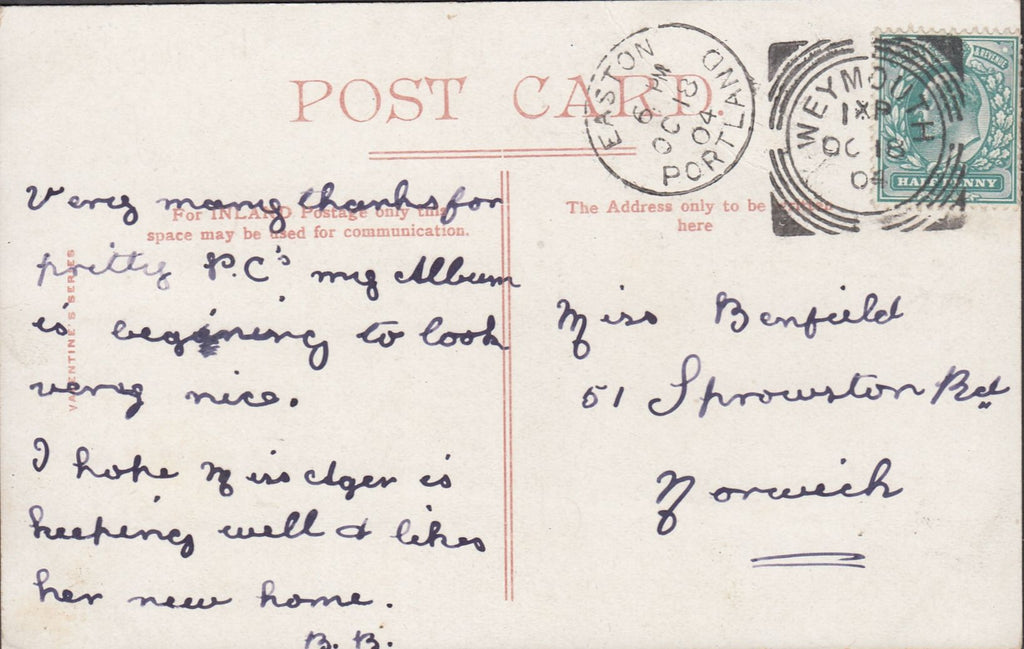 POST CARD.
EASTON PORTLAND
6 PM
OC 18
04
WEYMOUTH
1XP
OC 18
04
& REVENUE
HALFPENNY
For INLAND Postage only this
space may be used for communication.
The Address only to be written
here
VALENTINE'S SERIES
Very many thanks for
pretty P.C's my Album
is begining to look
very nice.
I hope Miss Ager is
keeping well & likes
her new home.
B. B.
Miss Benfield
51 Sprowston Rd
Norwich